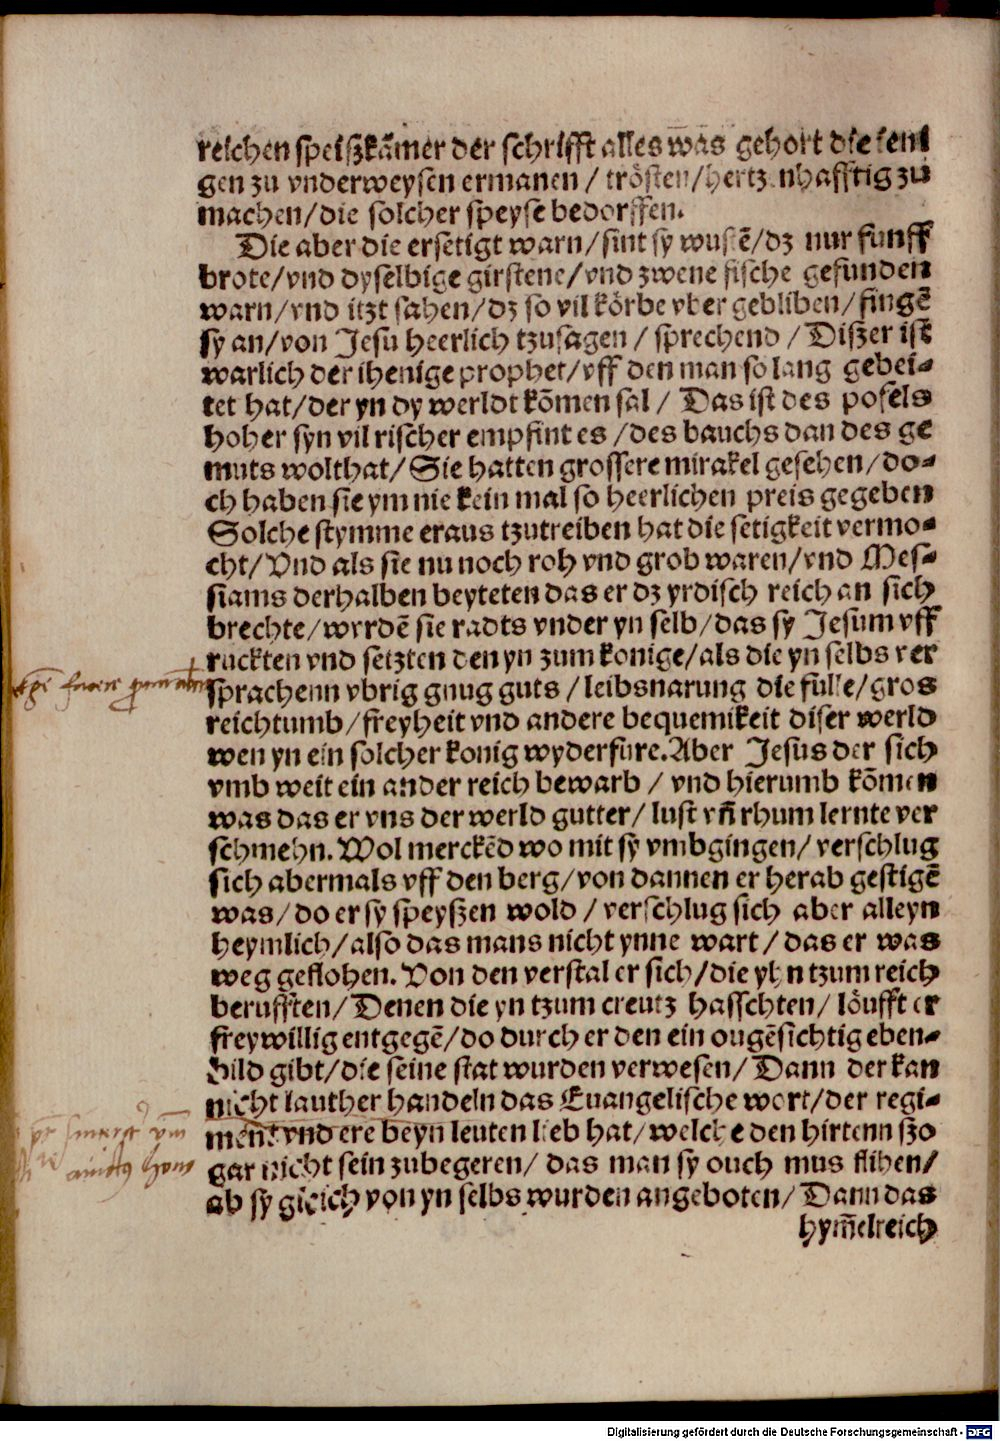 reichen speiszkämer der schrifft alles was gehort die ieni
gen zu vnderweysen ermanen / trösten/hertzenhafftig zu
machen/die solcher speyse bedorffen.
Die aber die ersetigt warn/sint sy wustē/dz nur funff
brote/vnd dyselbige girstene/vnd zwene fische gefunden
warn/vnd itzt sahen/dz so vil körbe vber gebliben/fingē
sy an/von Jesu heerlich tzusagen / sprechend / Diszer ist
warlich der ihenige prophet/vff den man so lang gebei-
tet hat/der yn dy werldt kōmen sal / Das ist des pofels
hoher syn vil rischer empfint es /des bauchs dan des ge
muts wolthat/Sie hatten grossere mirakel gesehen/do-
ch haben sie ym nie kein mal so heerlichen preis gegeben
Solche stymme eraus tzutreiben hat die setigkeit vermo-
cht/Vnd als sie nu noch roh vnd grob waren/vnd Mes-
siams derhalben beyteten das er dz yrdisch reich an sich
brechte/wrrdē sie radts vnder yn selb/das sy Jesum vff
ruckten vnd setzten den yn zum konige/als die yn selbs ver
sprachenn vbrig gnug guts /leibsnarung die fulle/gros
reichtumb/freyheit vnd andere bequemikeit diser werld
wen yn ein solcher konig wyderfure.Aber Jesus der sich
vmb weit ein ander reich bewarb / vnd hierumb kōmen
was das er vns der werld gutter/lust vn̄ rhum lernte ver
schmehn.Wol merckēd wo mit sy vmbgingen/verschlug
sich abermals vff den berg/von dannen er herab gestigē
was/do er sy speyszen wold / verschlug sich aber alleyn
heymlich/also das mans nicht ynne wart/das er was
weg geflohen.Von den verstal er sich/die yhn tzum reich
berufften/Denen die yn tzum creutz hasschten/löufft er
freywillig entgegē/do durch er den ein ougēsichtig eben-
bild gibt/die seine stat wurden verwesen/Dann der kan
nicht lauther handeln das Euangelische wort/der regi-
ment vnd ere beyn leuten lieb hat/welche den hirtenn szo
gar nicht sein zubegeren/das man sy ouch mus flihen/
ab sy gleich von yn selbs wurden angeboten/Dann das
hym̄elreich
Digitalisierung gefördert durch die Deutsche Forschungsgemeinschaft - DFG